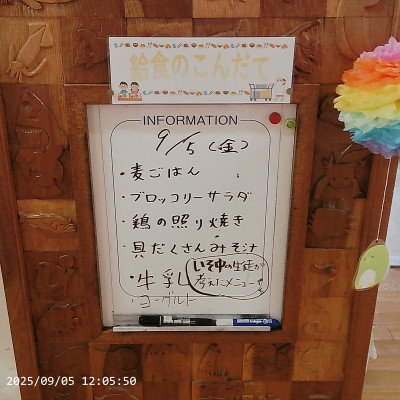 給食のこんだて
INFORMATION
9/5(金)
・麦ごはん
・ブロッコリーサラダ
・鶏の照り焼き
・具だくさんみそ汁
・牛乳
いそ中の生徒が
考えたメニューです
ヨーグルト
2025/09/05 12:05:50